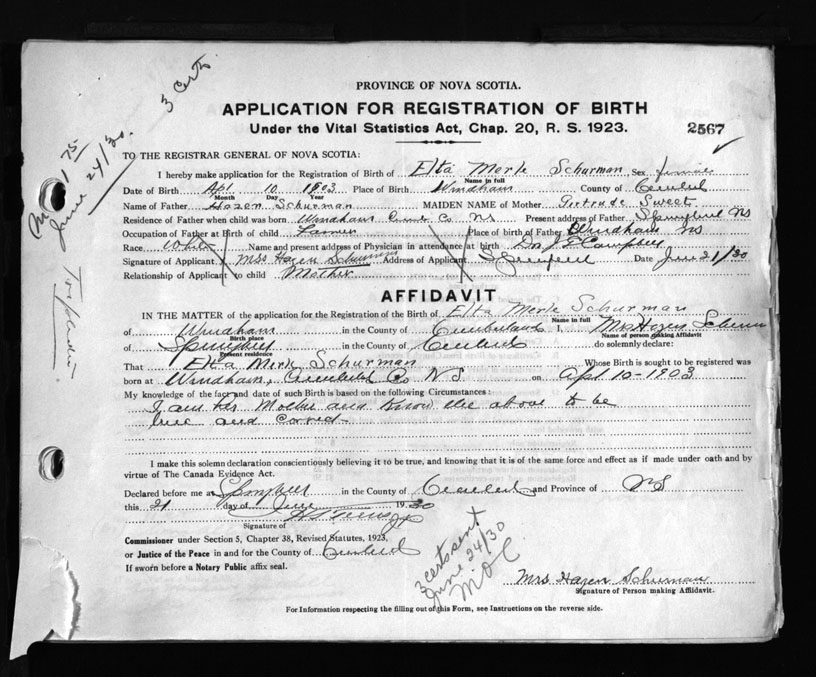 3 Certs
PROVINCE OF NOVA SCOTIA.
APPLICATION FOR REGISTRATION OF BIRTH
Under the Vital Statistics Act, Chap. 20, R. S. 1923.
2567
TO THE REGISTRAR GENERAL OF NOVA SCOTIA:
I hereby make application for the Registration of Birth of Elta Merle Schurman Sex
Name in full
Date of Birth Apl 10 1903 Place of Birth Windham County of
Month Day Year
Name of Father Hazen Schurman MAIDEN NAME of Mother Gertrude Sweet
Residence of Father when child was born Windham Co NS Present address of Father NS
Occupation of Father at Birth of child Farmer Place of birth of Father Windham NS
Race White Name and present address of Physician in attendance at birth Dr Campbell
Signature of Applicant Mrs Hazen Schurman Address of Applicant Date June 21/30
Relationship of Applicant to child Mother
AFFIDAVIT
IN THE MATTER of the application for the Registration of the Birth of Elta Merle Schurman
Name in full
of Windham in the County of Cumberland I, Mrs Hazen
Birth place Name of person making Affidavit
of in the County of do solemnly declare:
Present residence
That Elta Merle Schurman Whose Birth is sought to be registered was
born at Windham, Co N S on April 10 - 1903
My knowledge of the fact and date of such Birth is based on the following Circumstances:
I am her Mother and know the above to be
true and correct
I make this solemn declaration conscientiously believing it to be true, and knowing that it is of the same force and effect as if made under oath and by
virtue of The Canada Evidence Act.
Declared before me at in the County of and Province of NS
this 21 day of June 1930
Signature of
Commissioner under Section 5, Chapter 38, Revised Statutes, 1923,
or Justice of the Peace in and for the County of
If sworn before a Notary Public affix seal.
Mrs Hazen Schurman
Signature of Person making Affidavit.
For Information respecting the filling out of this Form, see Instructions on the reverse side.
1 75
June 24/30.
3 certs sent
June 24/30